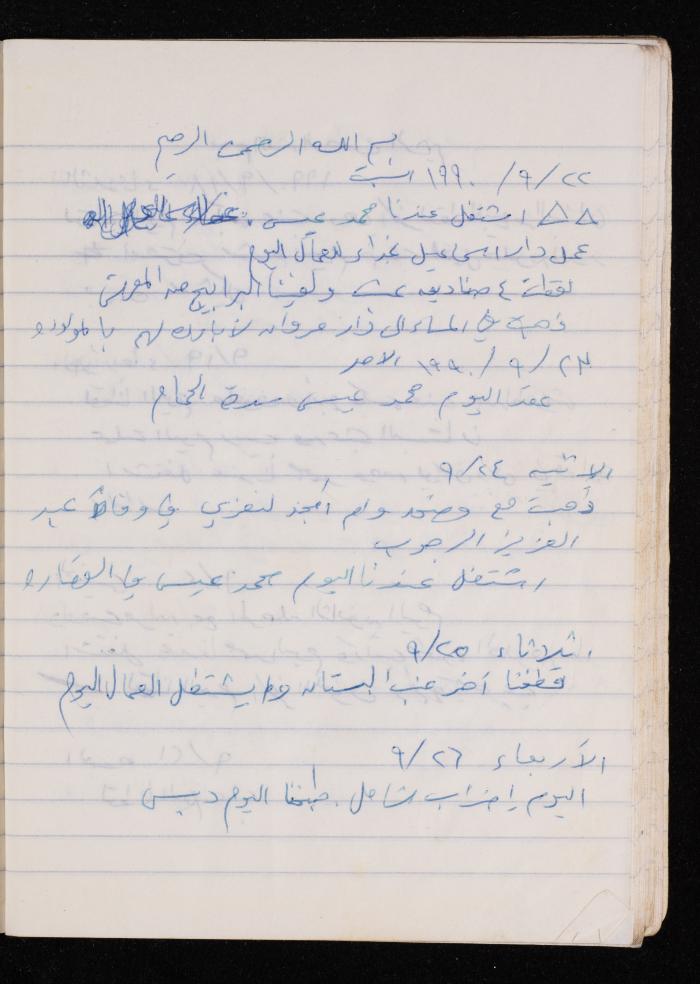 بسم الله الرحمن الرحيم
٢٢/ ٩/ ١٩٩٠ السبت
اشتغل عندنا محمد عيسى.
عمل دار اسماعيل غداء للعمال اليوم
لقطت ٤ صناديق عنب ولفينا البرابيج من المعرش
ذهبت في المساء الى دار مروان لأبارك لهم بالمولوده
٢٣/ ٩/ ١٩٩٠ الاحد
عقد اليوم محمد عيسى سدة الحمام
الاثنين ٩/٢٤
ذهبت مع وام أمجد لنعزي في وفاة عبد
العزيز الرجوب
اشتغل عندنا اليوم محمد عيسى في القصاره
الثلاثاء ٩/٢٥
قطفنا آخر عنب البستان ولم يشتغل العمال اليوم
الأربعاء ٩/٢٦
اليوم إضراب شامل. طبخنا اليوم دبس